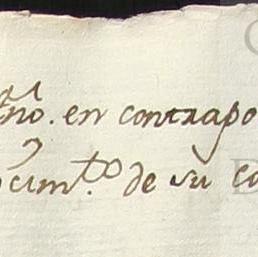 no. en contrapo
cum.to de su co